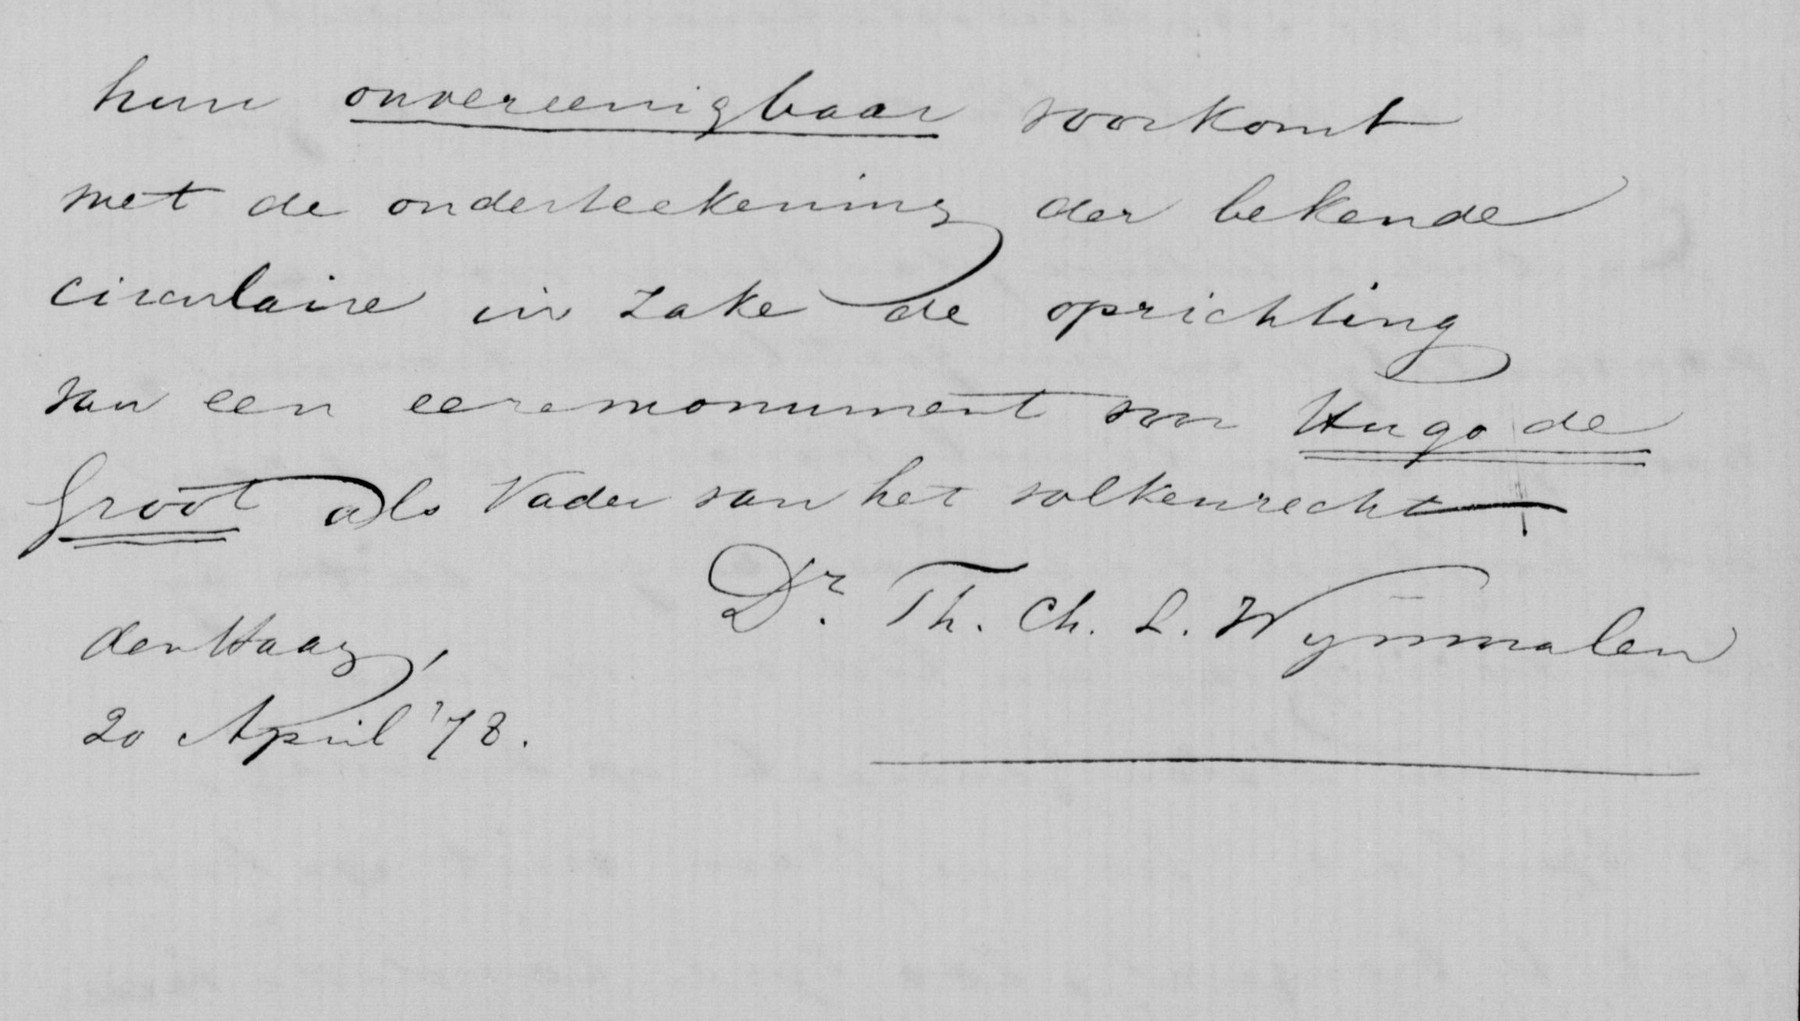 hun onvereenigbaar voorkomt
met de onderteekening der bekende
circulaire in zake de oprichting
van een eeremonument voor Hugo de
Groot als Vader van het volkenrecht
Dr. Th. Ch. L. Wijnmalen
den Haag,
20 April '78.